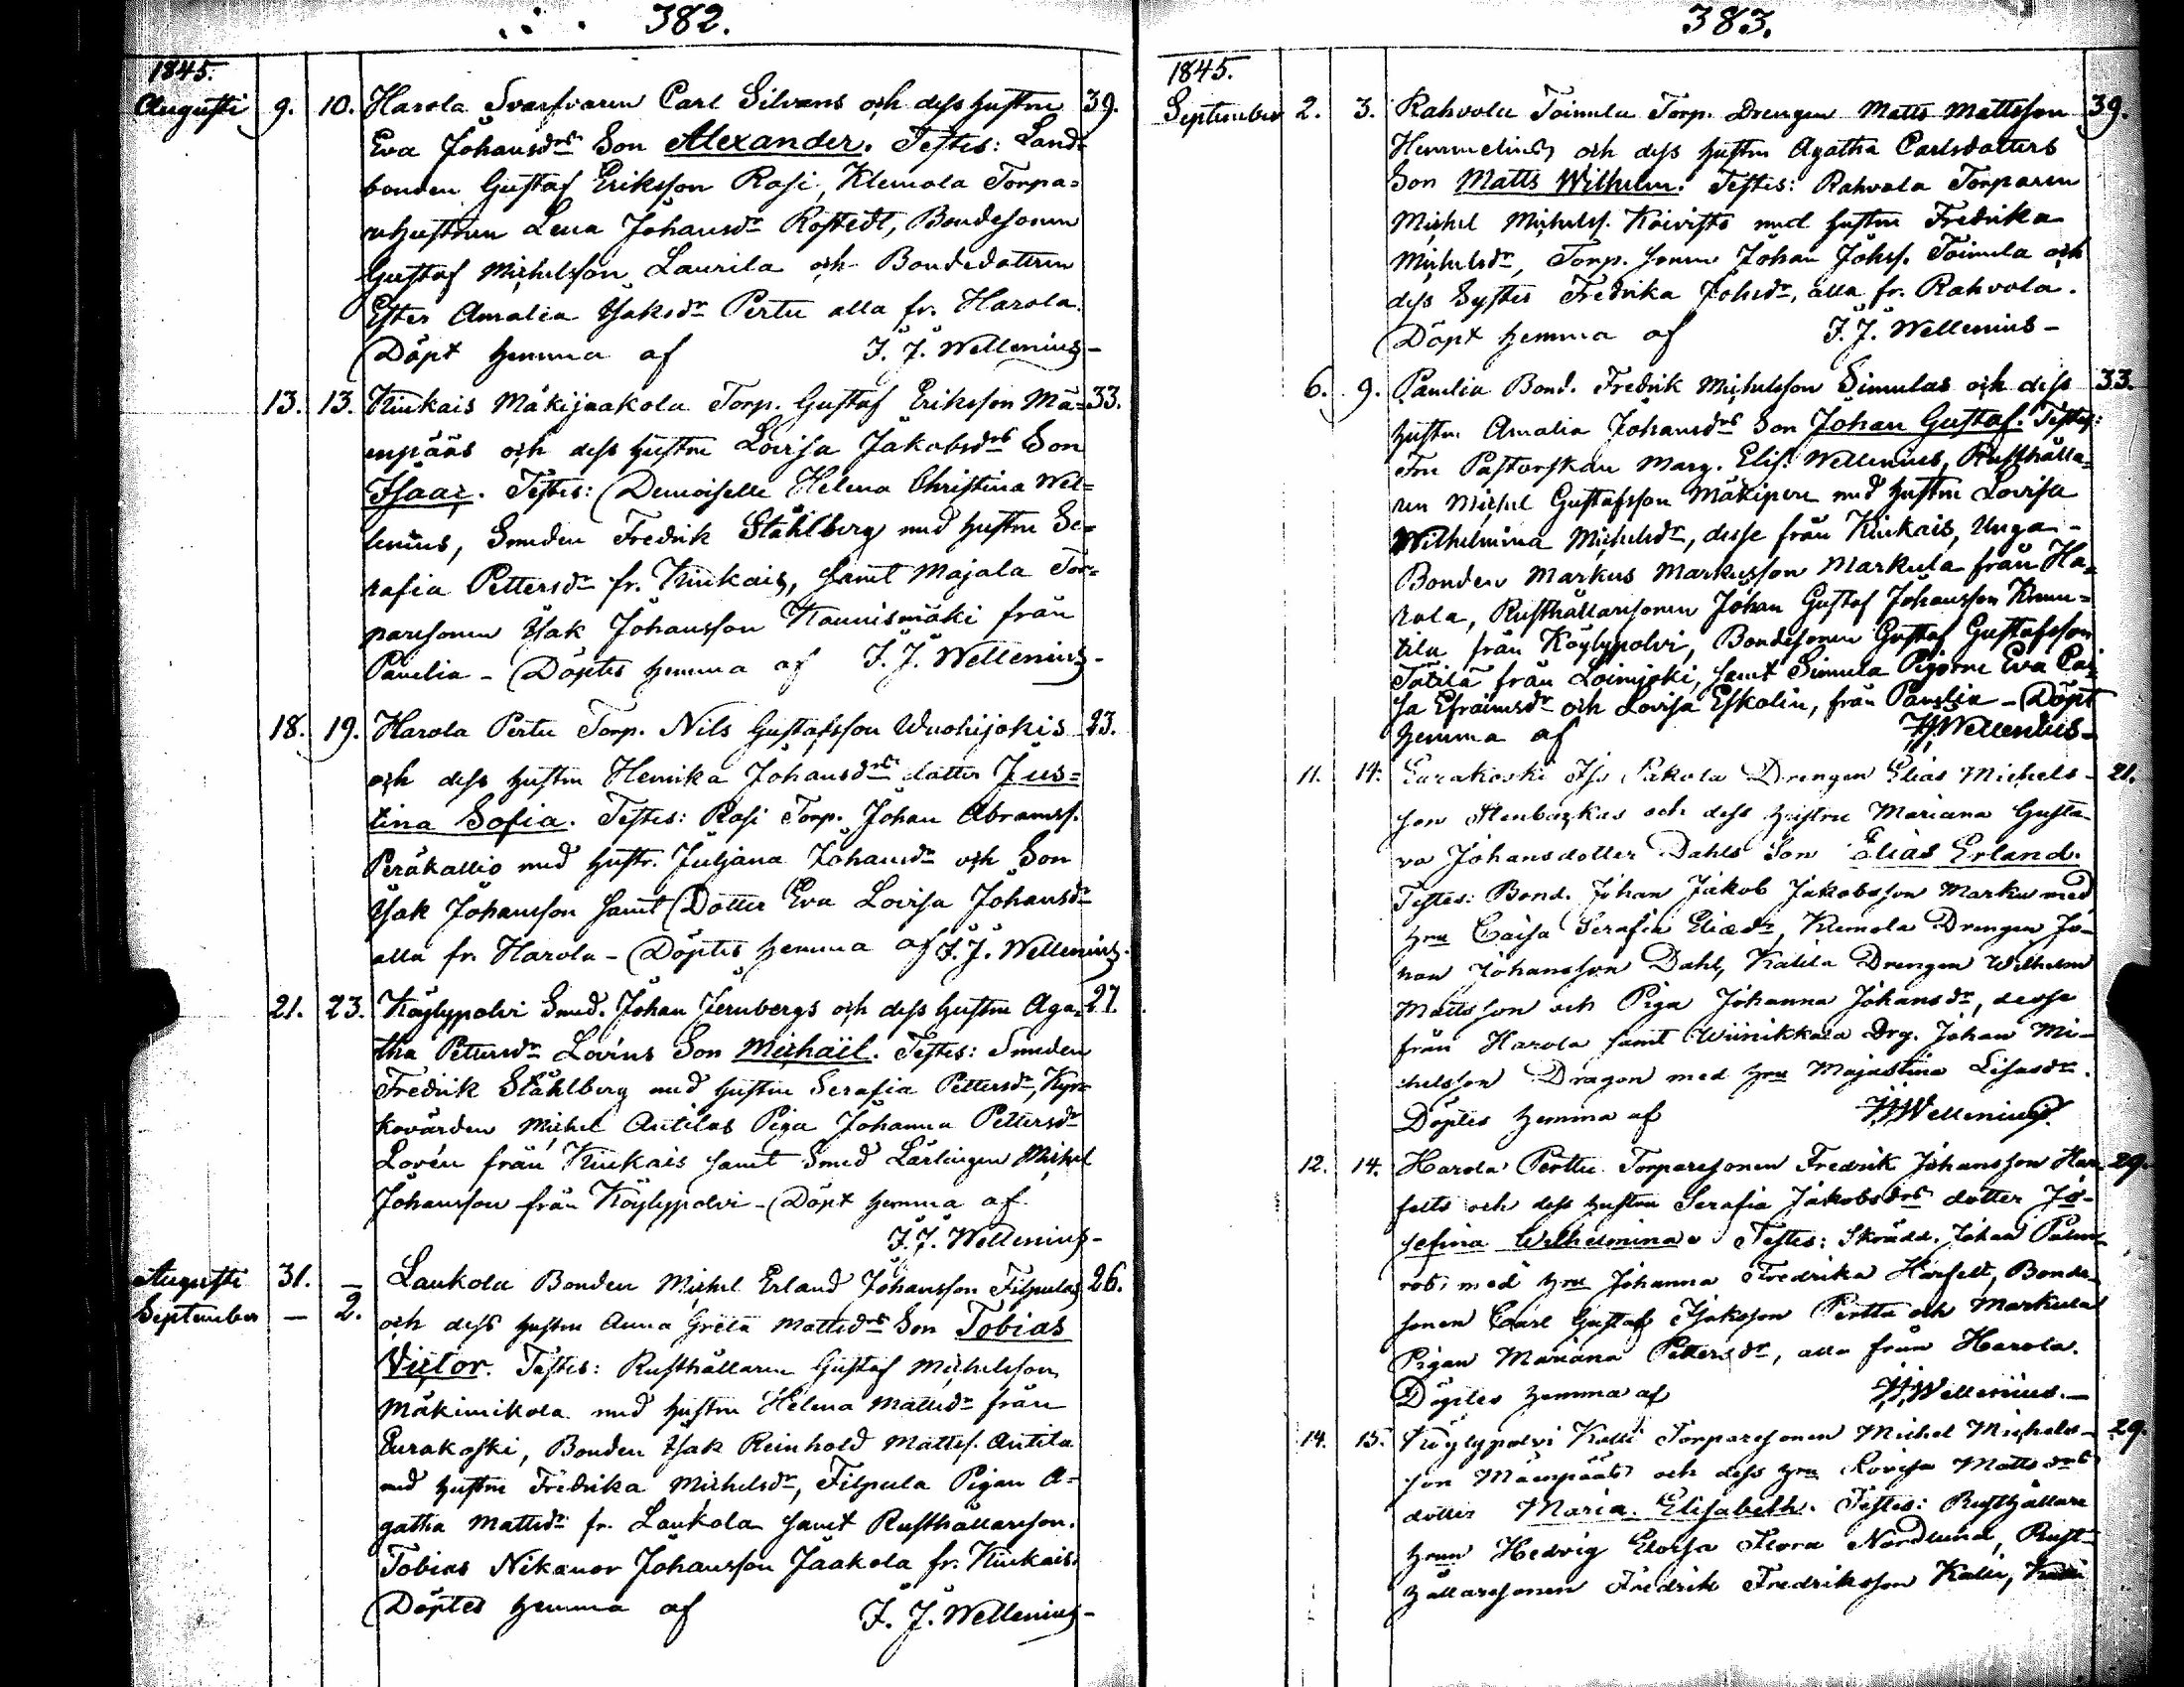 382.
1845.
Augusti 9. 10. Harola Svarfvaren Carl Silvans och dess hustru 39.
Eva Johansdrs Son Alexander. Testes: Land-
bonden Gustaf Eriksson Rasi, Klemola Torpa-
rehustrun Lena Johansdr Rostedt, Bondesonen
Gustaf Michelsson Laurila och Bondedottren
Ester Amalia Isaksdr Pertu alla fr. Harola.
Döpt hemma af J. J. Wellenius -
13. 13. Kiukais Mäkijaakola Torp. Gustaf Eriksson Mä- 33.
enpääs och dess hustru Lovisa Jakobsdrs Son
Isaac. Testes: Demoiselle Helena Christina Wel-
lenius, Smeden Fredrik Ståhlberg med hustru Se-
rafia Pettersdr fr. Kiukais, samt Majala Tor-
paresonen Isak Johansson Kaunismäki från
Panelia - Döptes hemma af J. J. Wellenius -
18. 19. Harola Pertu Torp. Nils Gustafsson Wuohijokis 23.
och dess hustru Henrika Johansdrs dotter Jus-
tina Sofia. Testes: Rasi Torp. Johan Abramss.
Peräkallio med hustr. Juliana Johansdr och Son
Isak Johansson samt Dotter Eva Lovisa Johansdr
alla fr. Harola - Döptes hemma af J. J. Wellenius.
21. 23. Köylypolvi Smed. Johan Jernbergs och dess hustru Aga- 27.
tha Pettersdr Lovéns Son Michaël. Testes: Smeden
Fredrik Ståhlberg med hustru Serafia Pettersdr, Kyr-
kovärden Michel Antilas Piga Johanna Pettersdr
Lovén från Kiukais samt Smed Lärlingen Michel
Johansson från Köylypolvi - Döpt hemma af
J. J. Wellenius -
Augusti 31. — Laukola Bonden Michel Erland Johansson Filpulas 26.
September — 2. och dess hustru Anna Greta Mattsdrs Son Tobias
Victor. Testes: Rusthållaren Gustaf Michelsson
Mäkimikola med hustru Helena Mattsdr från
Eurakoski, Bonden Isak Reinhold Mattss. Antila
med hustru Fredrika Michelsdr, Filpula Pigan A-
gatha Mattsdr fr. Laukola samt Rusthållareson.
Tobias Nikanor Johansson Jaakola fr. Kiukais.
Döptes hemma af J. J. Wellenius -
383.
1845.
September 2. 3. Rahvola Toimela Torp. Drengen Matts Mattsson 39.
och dess hustru Agatha Carlsdotters
Son Matts Wilhelm. Testes: Rahvola Torparen
Michel Michelss. Koivisto med hustru Fredrika
Michelsdr, Torp. sonen Johan Johss. Toimela och
dess Syster Fredrika Johsdr, alla fr. Rahvola.
Döpt hemma af J. J. Wellenius -
6. 9. Panelia Bond. Fredrik Michelsson Simulas och dess 33.
hustru Amalia Johansdrs Son Johan Gustaf. Testes:
Fru Pastorskan Marg. Elis. Wellenius, Rusthålla-
ren Michel Gustafsson Mäkipere med hustru Lovisa
Wilhelmina Michelsdr, desse från Kiukais, Unga
Bonden Markus Markusson Markula från Ha-
rola, Rusthållaresonen Johan Gustaf Johansson
från Köylypolvi, Bondesonen Gustaf Gustafsson
Tätilä från Loimijoki, samt Simula Pigorne Eva Cai-
sa Efraimsdr och Lovisa Eskolin, från Panelia - Döpt
hemma af JJWellenius -
11. 14. Eurakoski Drengen Elias Michels- 21.
son och dess hustru Mariana Gusta-
va Johansdotter Dahls Son Elias Erland.
Testes: Bond. Johan Jakob Jakobsson Marku med
hru Caisa Serafia Eliædr, Klemola Drengen Jo-
han Johansson Dahl, Katila Drengen Wilhelm
Mattsson och Piga Johanna Johansdr, desse
från Harola samt Wiinikkala Drg. Johan Mi-
chelsson Dragon med hru Majastina Lisasdr.
Döptes hemma af JJWellenius.
12. 14. Harola Perttu Torparesonen Fredrik Johansson Har- 29.
felts och dess hustru Serafia Jakobsdrs dotter Jo-
sefina Wilhelmina. Testes: Skrädd. Johan Palm-
ros, med hru Johanna Fredrika Harfelt, Bonde-
sonen Carl Gustaf Isaksson Perttu och Markula
Pigan Mariana Pettersdr, alla från Harola.
Döptes hemma af JJWellenius. -
14. 15. Köylypolvi Kalli Torparesonen Michel Michels- 29.
son Mäenpääs och dess hru Lovisa Mattsdrs
dotter Maria Elisabeth. Testes: Rusthållare
hrun Hedvig Elovsa Flora Nordlund, Rust-
hållaresonen Fredrik Fredriksson Kalli, Kalli